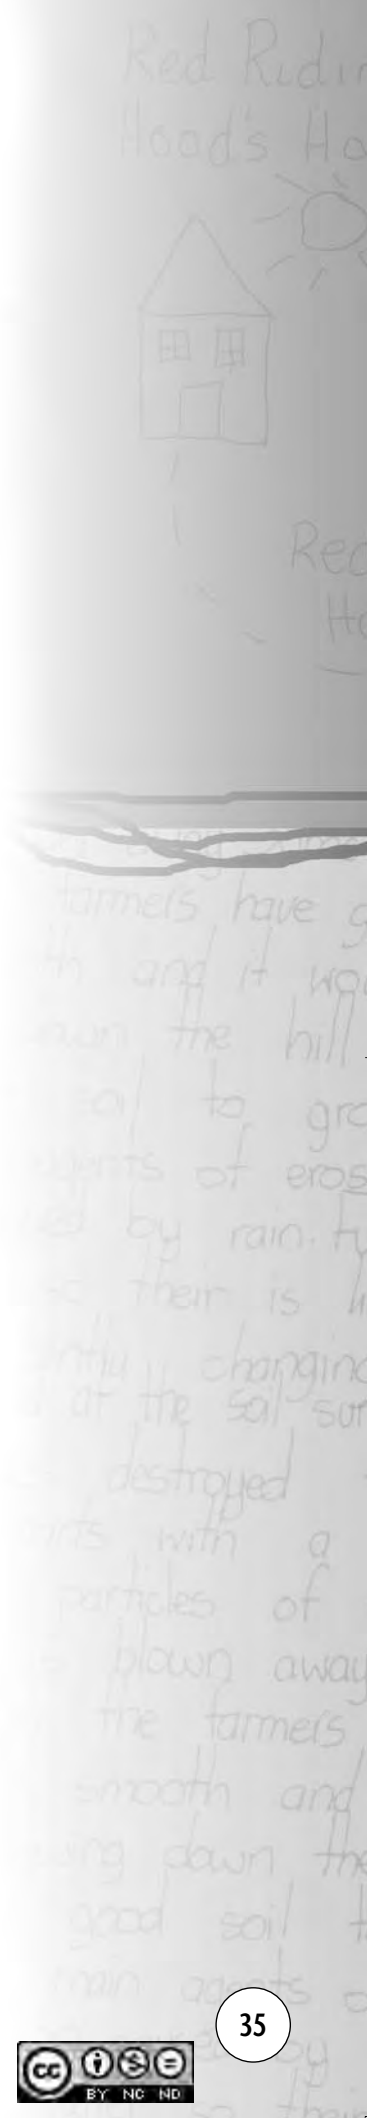 Red Ridin
Hood's Ho
Red
Ho
farmers have g
th and it wou
own the hill
soil to gro
agents of eros
by rain. ty
their is li
ntly changing
at the soil sur
destroyed
arts with a
particles of
blown away
the farmers
smooth and
wing down the
good soil t
main agents o
35
by
CC BY NC ND